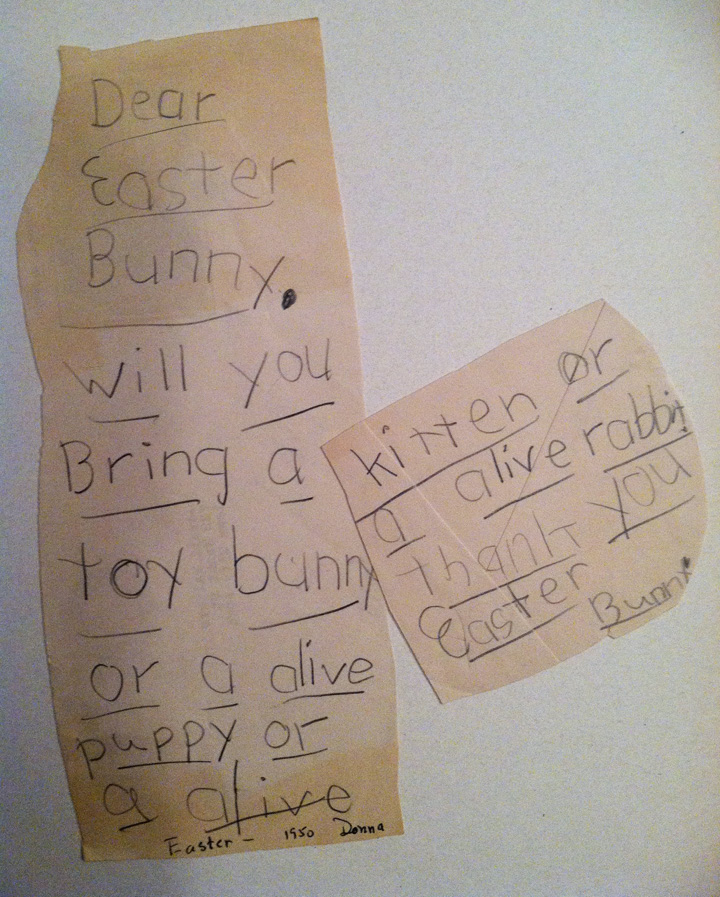 Dear
Easter
Bunny.
will you
Bring a
toy bunny
or a alive
puppy or
a alive
Easter - 1950 Donna
kitten or
a alive rabbit.
thank you
Easter Bunny.